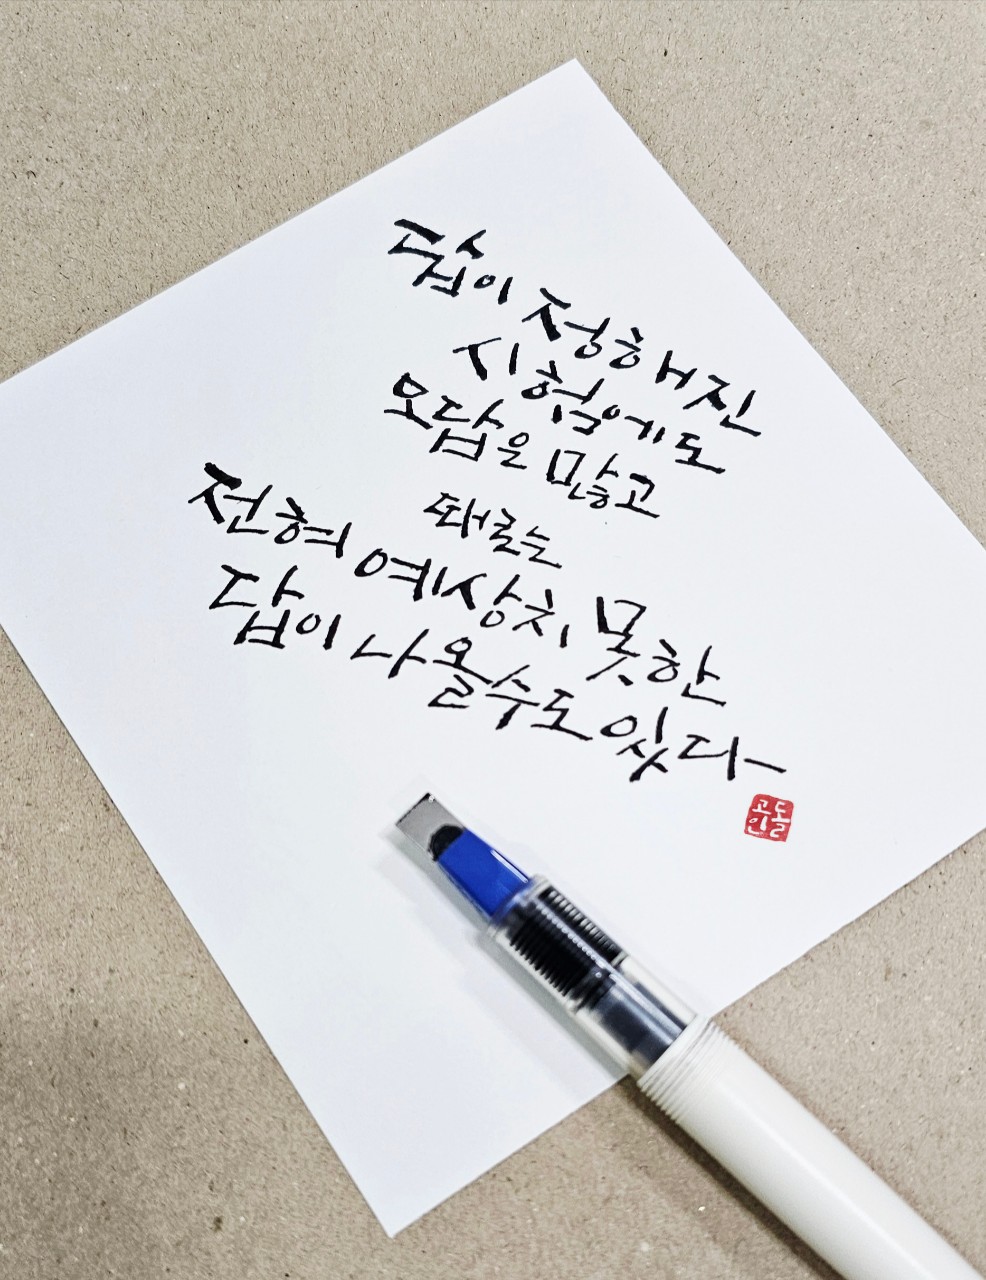 답이 정해진
시험에도
오답은 많고
때로는
전혀 예상치 못한
답이 나올수도 있다
고돌
인